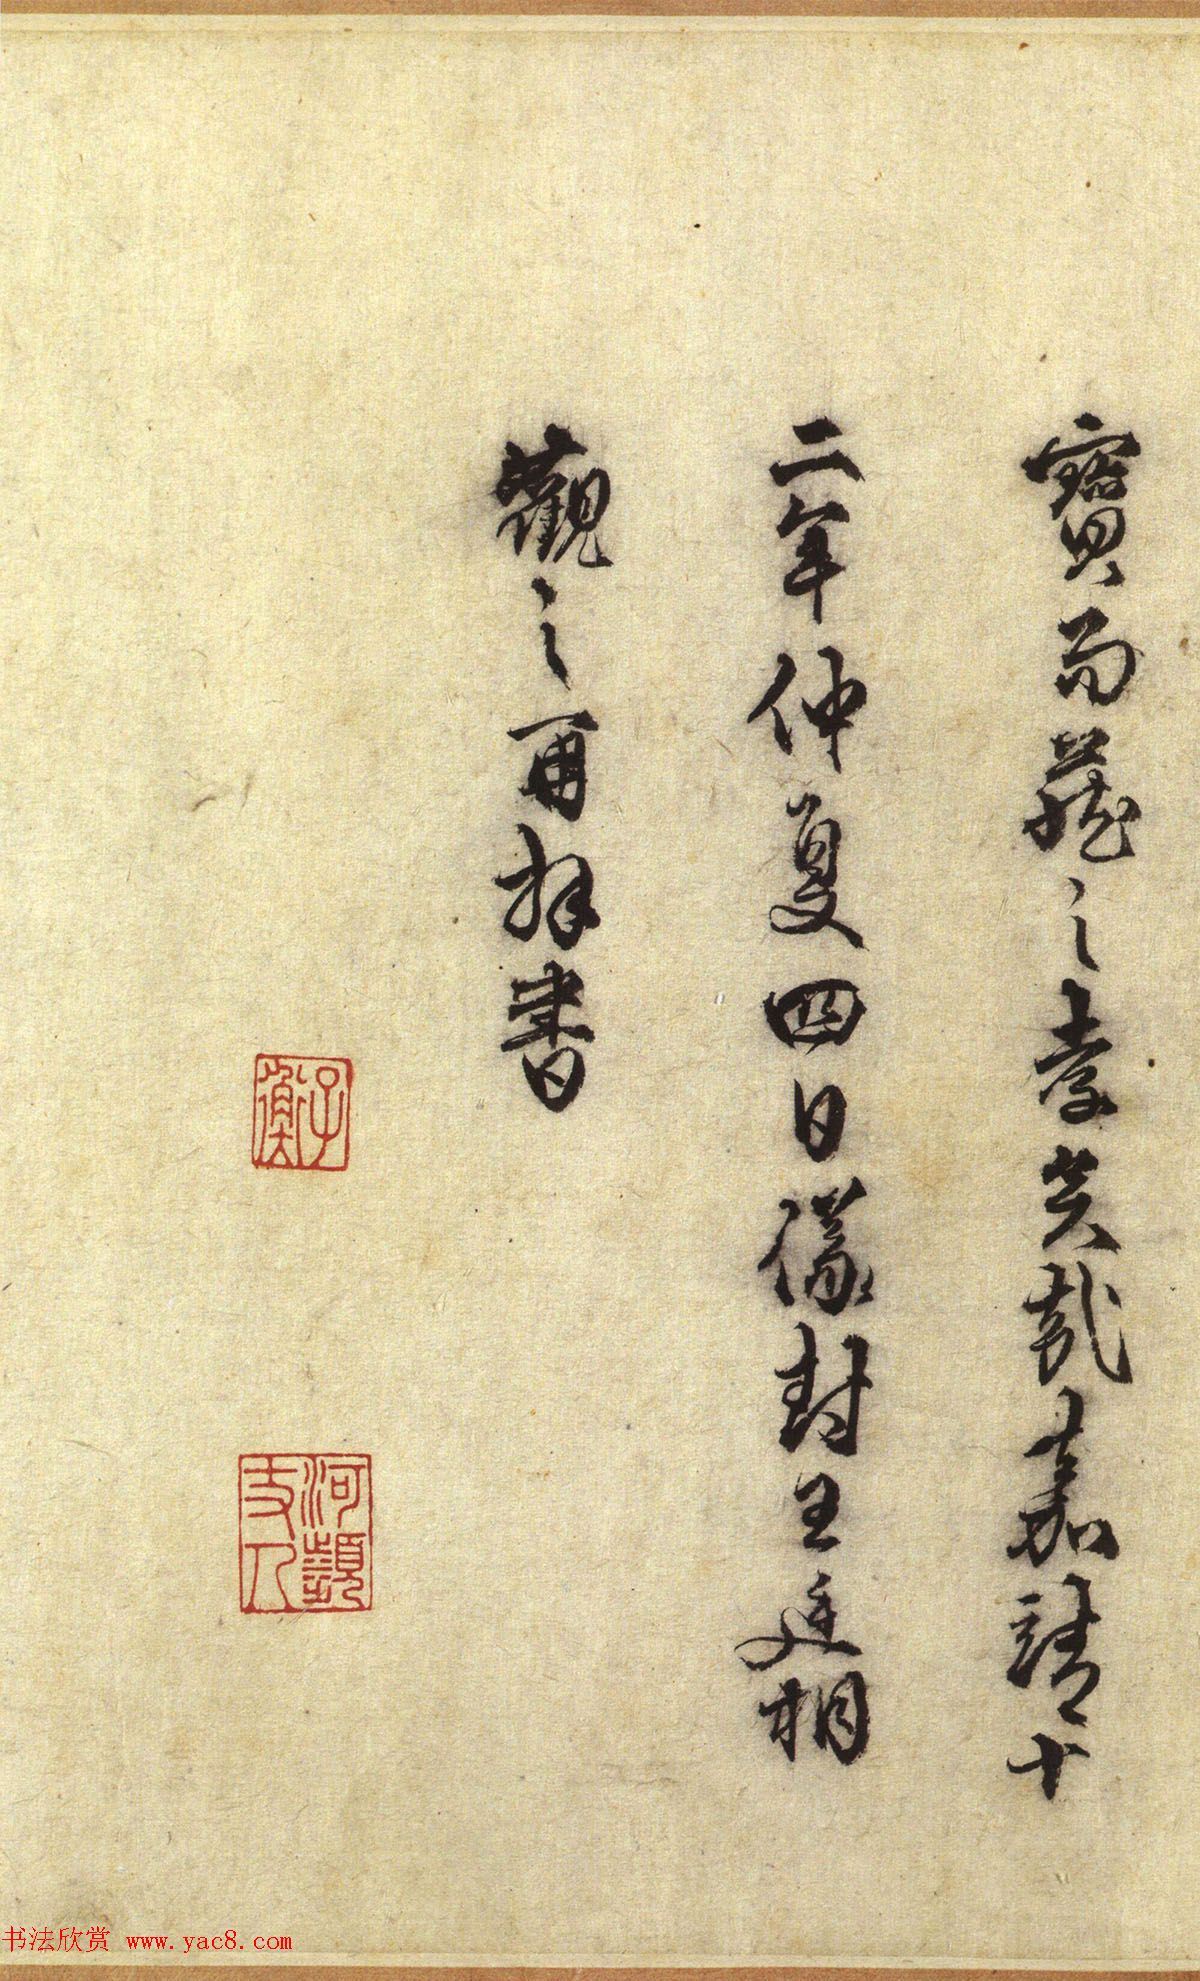 寶而藏之孝矣哉嘉靖十
二年仲夏四日儀封王廷相
觀之再拜書
子衡
河瀕丈人
书法欣赏 www.yac8.com